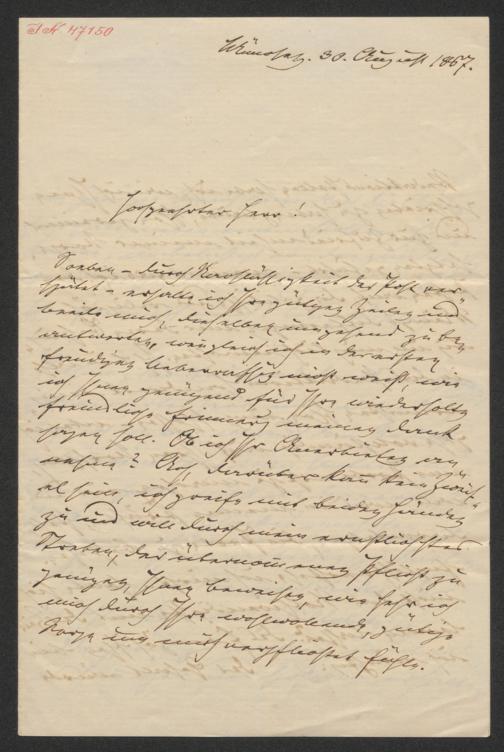 I.N. 47150
30. August 1867.
Hochgeehrter Herr!
Soeben – durch Nachlässigkeit der Post ver
spätet – erhalte ich Ihre gütigen Zeilen und
beeile mich, dieselben umgehend zu be
antworten, wenngleich ich in der ersten
freudigen Ueberraschung nicht weiß, wie
ich Ihnen genügend für Ihre wiederholte
freundliche Erinnerung meinen Dank
sagen soll. Ob ich Ihr Anerbieten an
nehme? Ach, darüber kann kein Zweif
el sein, ich greife mit beiden Händen
zu und will durch mein ernstlichstes
Streben, der übernommenen Pflicht zu
genügen, Ihnen beweisen, wie sehr ich
mich durch Ihre wohlwollende, gütige
Sorge um mich verpflichtet fühle.